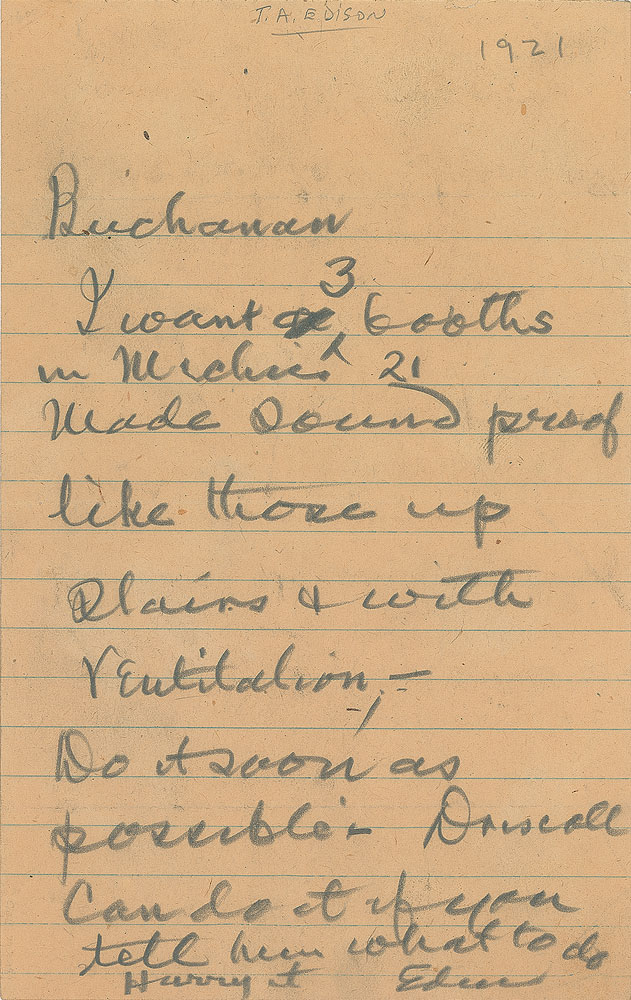 T. A. EDISON
1921
Buchanan
3
I want booths
in 21
Made Sound proof
like those up
Stairs & with
Ventilation;-
Do it soon as
possible - Driscoll
Can do it if you
tell him what to do
Hurry it